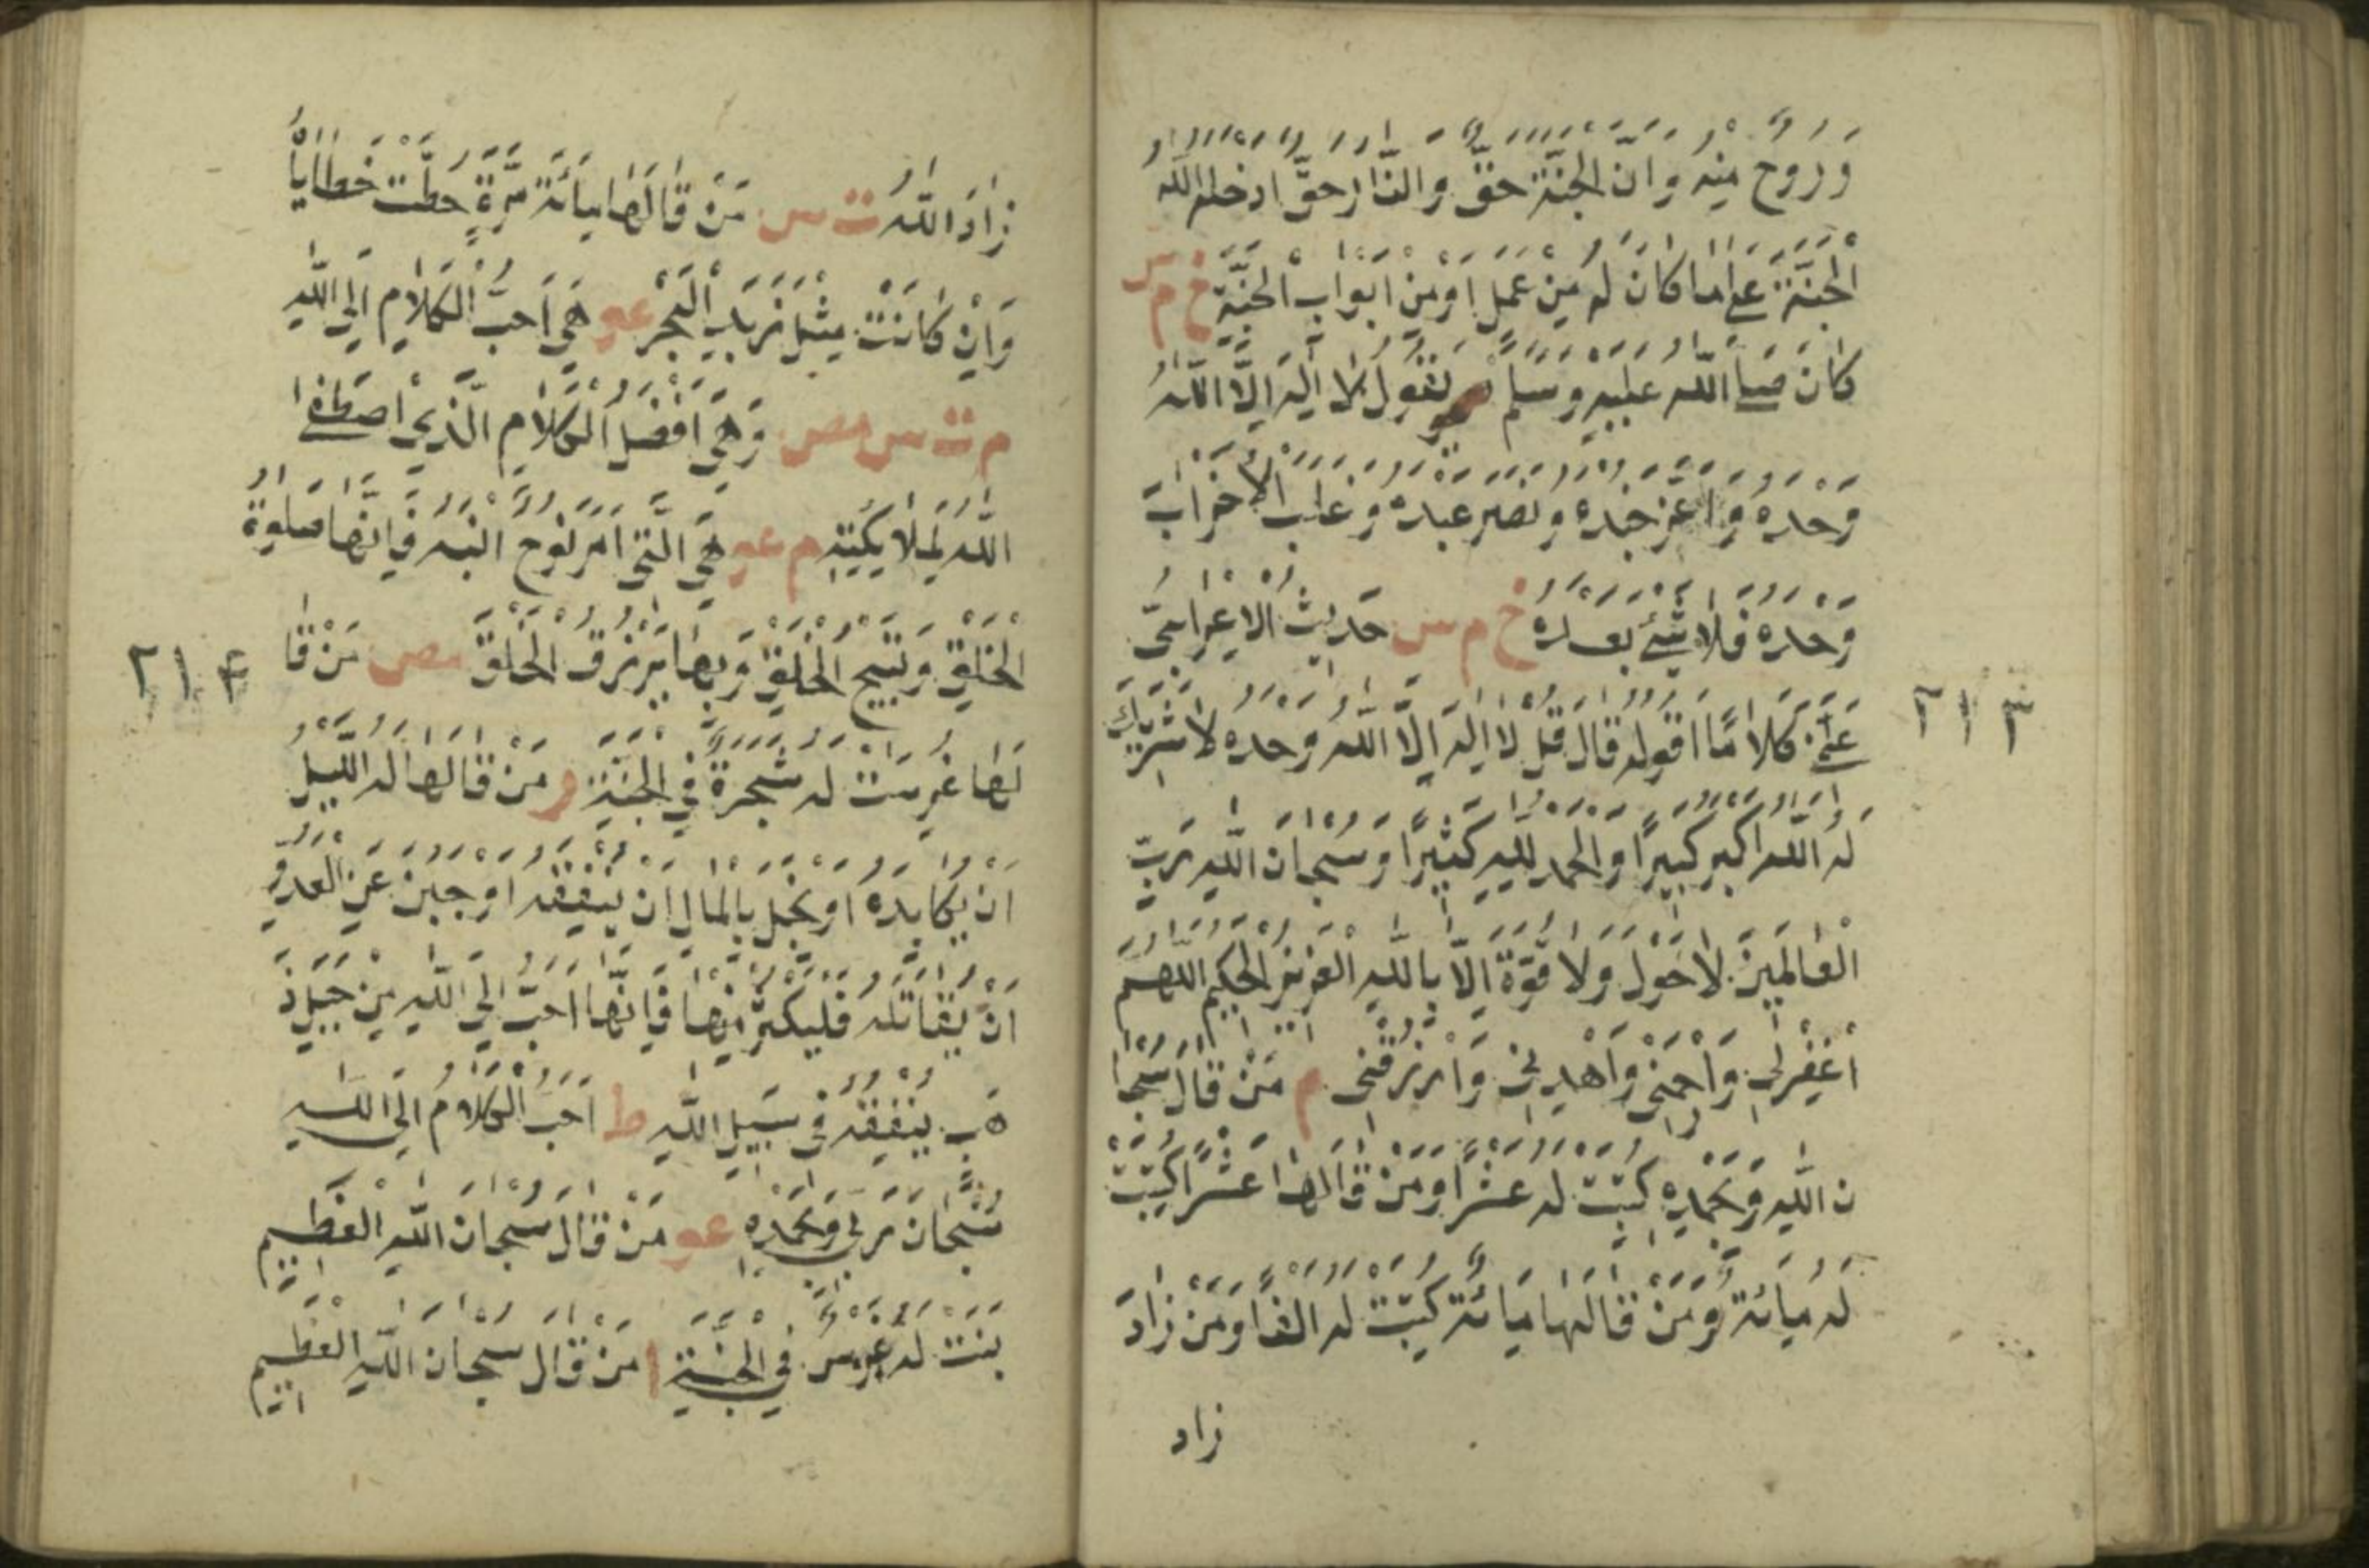 وَرُوحٌ مِنْهُ وَاَنَّ الْجَنَّةَ حَقٌّ وَالنَّارُ حَقٌّ ادخله اللّٰهُ
الْجَنَّةَ عَلٰى مَا كَانَ لَهُ مِنْ عَمَلٍ اَوْ مِنْ اَبْوَابِ الْجَنَّةِ خ م س
كَانَ صَلَّى اللّٰه عليه وسلم يَقُولُ لَا اِلٰهَ اِلَّا اللّٰهُ
وَحْدَهُ وَاَعَزَّ جُنْدَهُ وَنَصَرَ عَبْدَهُ وَغَلَبَ الْاَحْزَابَ
وَحْدَهُ فَلَا شَيْءَ بَعْدَهُ خ م س حَدِيثُ الْاَعْرَابِيِّ
عَلِّمْنِي كَلَامًا اَقُولُهُ قَالَ قُلْ لَا اِلٰهَ اِلَّا اللّٰهُ وَحْدَهُ لَا شَرِيكَ
لَهُ اللّٰهُ اَكْبَرُ كَبِيرًا وَالْحَمْدُ لِلّٰهِ كَثِيرًا وَسُبْحَانَ اللّٰهِ رَبِّ
الْعَالَمِينَ لَا حَوْلَ وَلَا قُوَّةَ اِلَّا بِاللّٰهِ الْعَزِيزِ الْحَكِيمِ اَللّٰهُمَّ
اغْفِرْ لِي وَارْحَمْنِي وَاهْدِنِي وَارْزُقْنِي م مَنْ قَالَ سُبْحَا
نَ اللّٰهِ وَبِحَمْدِهِ كُتِبَتْ لَهُ عَشْرًا وَمَنْ قَالَهَا عَشْرًا كُتِبَتْ
لَهُ مِائَةً وَمَنْ قَالَهَا مِائَةً كُتِبَتْ لَهُ اَلْفًا وَمَنْ زَادَ
زاد
٢١٣
زَادَهُ اللّٰهُ ت س مَنْ قَالَهَا مِائَةَ مَرَّةٍ حُطَّتْ خَطَايَاهُ
وَاِنْ كَانَتْ مِثْلَ زَبَدِ الْبَحْرِ عو هِيَ اَحَبُّ الْكَلَامِ اِلَى اللّٰهِ
م ت س مص وَهِيَ اَفْضَلُ الْكَلَامِ الَّذِي اصْطَفَا
اللّٰهُ لِمَلَائِكَتِهِ م عو هِيَ الَّتِي اَمَرَ نُوحٌ ابْنَهُ فَاِنَّهَا صَلٰوةُ
الْخَلْقِ وَتَسْبِيحُ الْخَلْقِ وَبِهَا يُرْزَقُ الْخَلْقُ مص مَنْ قَا
لَهَا غُرِسَتْ لَهُ شَجَرَةٌ فِي الْجَنَّةِ ر مَنْ هَالَهُ اللَّيْلُ
اَنْ يُكَابِدَهُ اَوْ بَخِلَ بِالْمَالِ اَنْ يُنْفِقَهُ اَوْ جَبُنَ عَنِ الْعَدُوِّ
اَنْ يُقَاتِلَهُ فَلْيُكْثِرْ مِنْهَا فَاِنَّهَا اَحَبُّ اِلَى اللّٰهِ مِنْ جَبَلِ ذَ
هَبٍ يُنْفِقُهُ فِي سَبِيلِ اللّٰهِ ط اَحَبُّ الْكَلَامِ اِلَى اللّٰهِ
سُبْحَانَ رَبِّي وَبِحَمْدِهِ عو مَنْ قَالَ سُبْحَانَ اللّٰهِ الْعَظِيمِ
نبت لَهُ غَرْسٌ فِي الْجَنَّةِ ا مَنْ قَالَ سُبْحَانَ اللّٰهِ الْعَظِيمِ
٢١٤